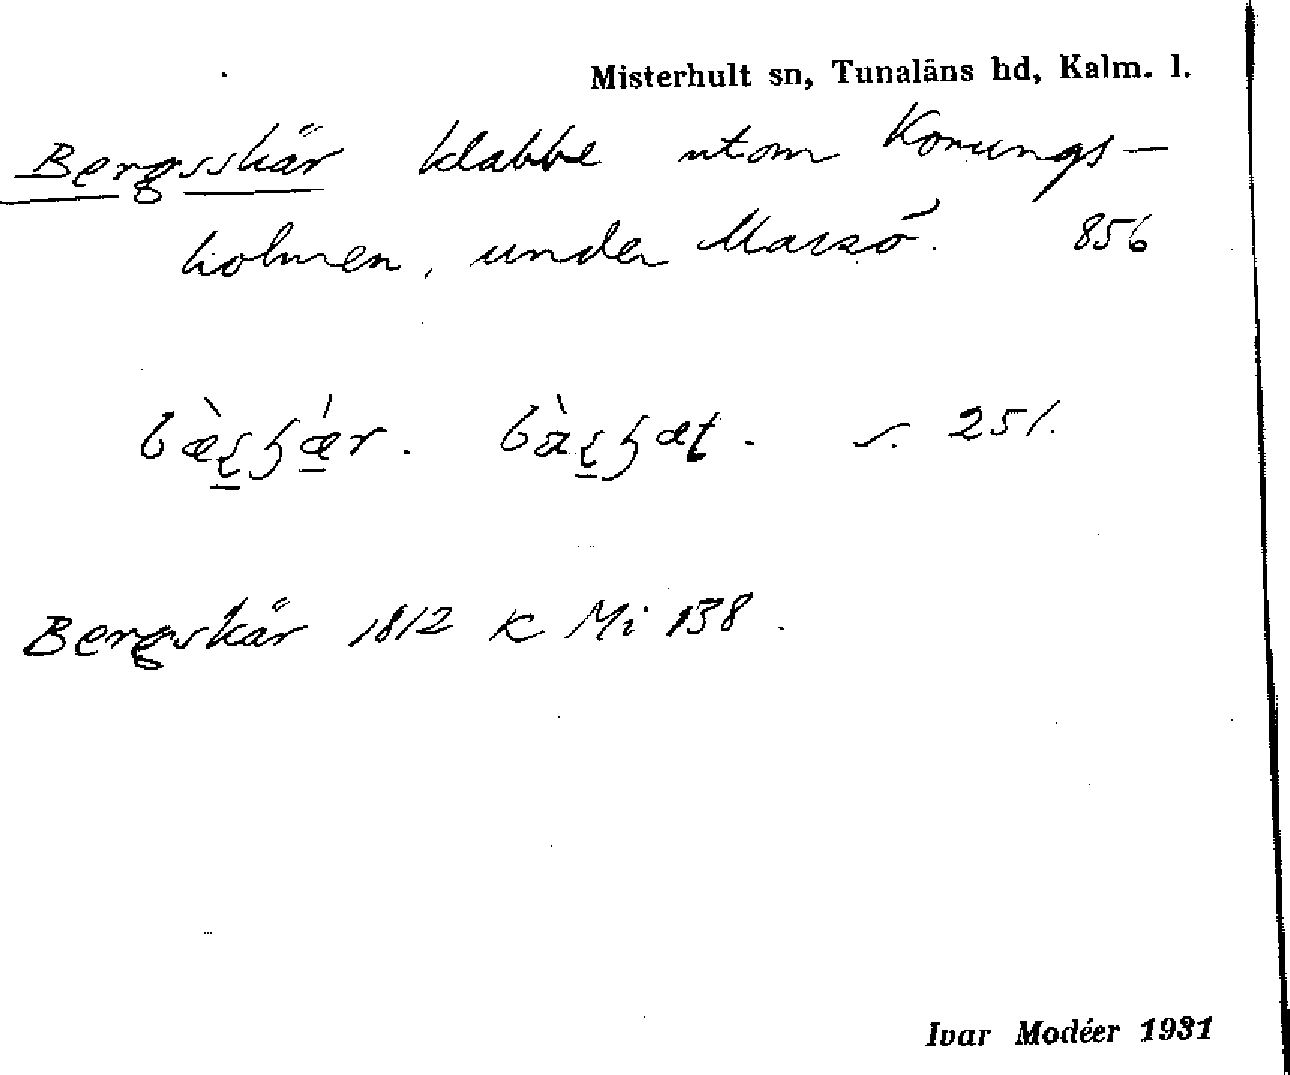 Misterhult sn, Tunaläns hd, Kalm. l.
Bergsskär klabbe utom Konungs-
holmen, under Marsö. 856
s. 251.
Bergskär 1812 K Mi 138.
Ivar Modéer 1931